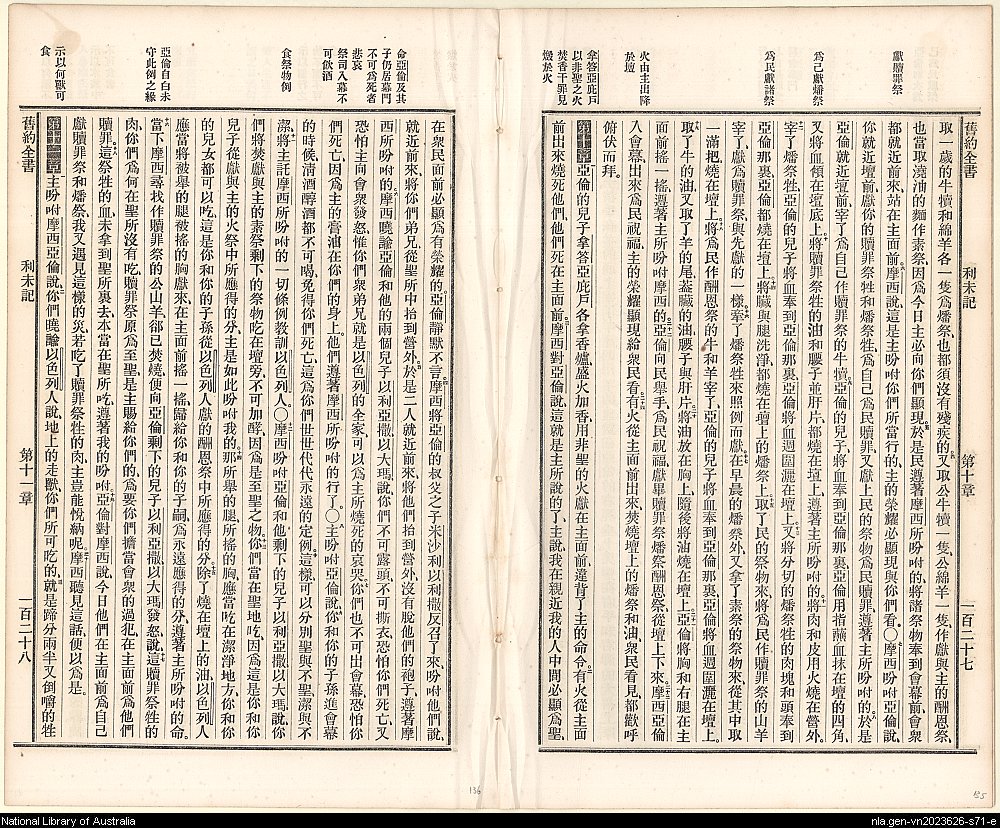 舊約全書 利未記 第十章 一百二十七
獻贖罪祭
爲己獻燔祭
爲民獻諸祭
火由主出降於壇
拿答亞庇戶以非聖之火焚香干罪見燬於火
取一歲的牛犢和綿羊各一隻爲燔祭、也都須沒有殘疾的、又取公牛犢一隻公綿羊一隻作獻與主的酬恩祭、
也當取澆油的麵作素祭、因爲今日主必向你們顯現於是民遵著摩西所吩咐的將諸祭物奉到會幕前會衆
都就近前來、站在主面前摩西說、這是主吩咐你們所當行的、主的榮耀必顯現與你們看〇摩西吩咐亞倫說、
你就近壇前獻你的贖罪祭牲和燔祭牲、爲自己爲民贖罪、又獻上民的祭物爲民贖罪、遵著主所吩咐的、於是
亞倫就近壇前宰了爲自己作贖罪祭的牛犢亞倫的兒子將血奉到亞倫那裏亞倫用指蘸血抹在壇的四角、
又將血傾在壇底上、將贖罪祭牲的油和腰子並肝片、都燒在壇上、遵著主所吩咐的、將肉和皮用火燒在營外、
宰了燔祭牲、亞倫的兒子將血奉到亞倫那裏亞倫將血週圍灑在壇上、又將分切的燔祭牲的肉塊和頭奉到
亞倫那裏亞倫都燒在壇上將臟與腿洗淨都燒在壇上的燔祭上、取了民的祭物來將爲民作贖罪祭的山羊
宰了、獻爲贖罪祭與先獻的一樣、牽了燔祭牲來照例而獻、在早晨的燔祭外、又拿了素祭的祭物來、從其中取
一滿把燒在壇上、將爲民作酬恩祭的牛和羊宰了、亞倫的兒子將血奉到亞倫那裏亞倫將血週圍灑在壇上、
取了牛的油、又取了羊的尾葢臟的油腰子與肝片、將油放在胸上、隨後將油燒在壇上、亞倫將胸和右腿在主
面前搖一搖遵著主所吩咐摩西的、亞倫向民舉手、爲民祝福、獻畢贖罪祭燔祭酬恩祭、從壇上下來、摩西亞倫
入會幕、出來爲民祝福、主的榮耀顯現給衆民看、有火從主面前出來、焚燒壇上的燔祭和油、衆民看見、都歡呼
俯伏而拜、
第十章亞倫的兒子拿答亞庇戶各拿香爐盛火加香、用非聖的火獻在主面前、違背了主的命令、有火從主面
前出來燒死他們、他們死在主面前、摩西對亞倫說、這就是主所說的了、主說、我在親近我的人中間必顯爲聖、
命亞倫及其子仍居幕門不可爲死者悲哀
祭司入幕不可飲酒
食祭物例
亞倫自白未守此例之緣
示以何獸可食
在衆民面前必顯爲有榮耀的、亞倫靜默不言、摩西將亞倫的叔父之子米沙利以利撒反召了來、吩咐他們說、
就近前來、將你們弟兄從聖所中抬到營外、於是二人就近前來將他們抬到營外、沒有脫他們的袍子、遵著摩
西所吩咐的、摩西曉諭亞倫和他的兩個兒子以利亞撒以大瑪說、你們不可露頭、不可撕衣、恐怕你們死亡、又
恐怕主向會衆發怒、惟你們衆弟兄就是以色列的全家可以爲主所燒死的哀哭、你們也不可出會幕、恐怕你
們死亡、因爲主的膏油在你們的身上、他們遵著摩西所吩咐的行了、〇主吩咐亞倫說、你和你的子孫進會幕
的時候、淸酒醇酒都不可喝、免得你們死亡、這爲你們世世代代永遠的定例、這樣可以分別聖與不聖潔與不
潔、將主託摩西所吩咐的一切條例教訓以色列人、〇摩西吩咐亞倫和他剩下的兒子以利亞撒以大瑪說、你
們將焚獻與主的素祭剩下的祭物吃在壇旁、不可加酵、因爲是至聖之物、你們當在聖地吃、因爲這是你和你
兒子從獻與主的火祭中所應得的分、主是如此吩咐我的、那所舉的腿所搖的胸應當吃在潔淨地方、你和你
的兒女都可以吃、這是你和你的子孫從以色列人獻的酬恩祭中所應得的分、除了燒在壇上的油、以色列人
應當將被舉的腿被搖的胸獻來、在主面前搖一搖、歸給你和你的子嗣、爲永遠應得的分、遵著主所吩咐的命、
當下摩西尋找作贖罪祭的公山羊卻已焚燒、便向亞倫剩下的兒子以利亞撒以大瑪發怒說、這贖罪祭牲的
肉、你們爲何在聖所沒有吃、贖罪祭原爲至聖、是主賜給你們的、爲要你們擔當會衆的過犯、在主面前爲他們
贖罪、這祭牲的血未拿到聖所裏去、本當在聖所吃、遵著我的吩咐、亞倫對摩西說、今日他們在主面前爲自己
獻贖罪祭和燔祭、我又遇見這樣的災、若吃了贖罪祭牲的肉、主豈能悅納呢、摩西聽見這話、便以爲是、
第十一章主吩咐摩西亞倫說、你們曉諭以色列人說、地上的走獸、你們所可吃的、就是蹄分兩半又倒嚼的牲
舊約全書 利未記 第十一章 一百二十八
136
135
National Library of Australia
nla.gen-vn2023626-s71-e